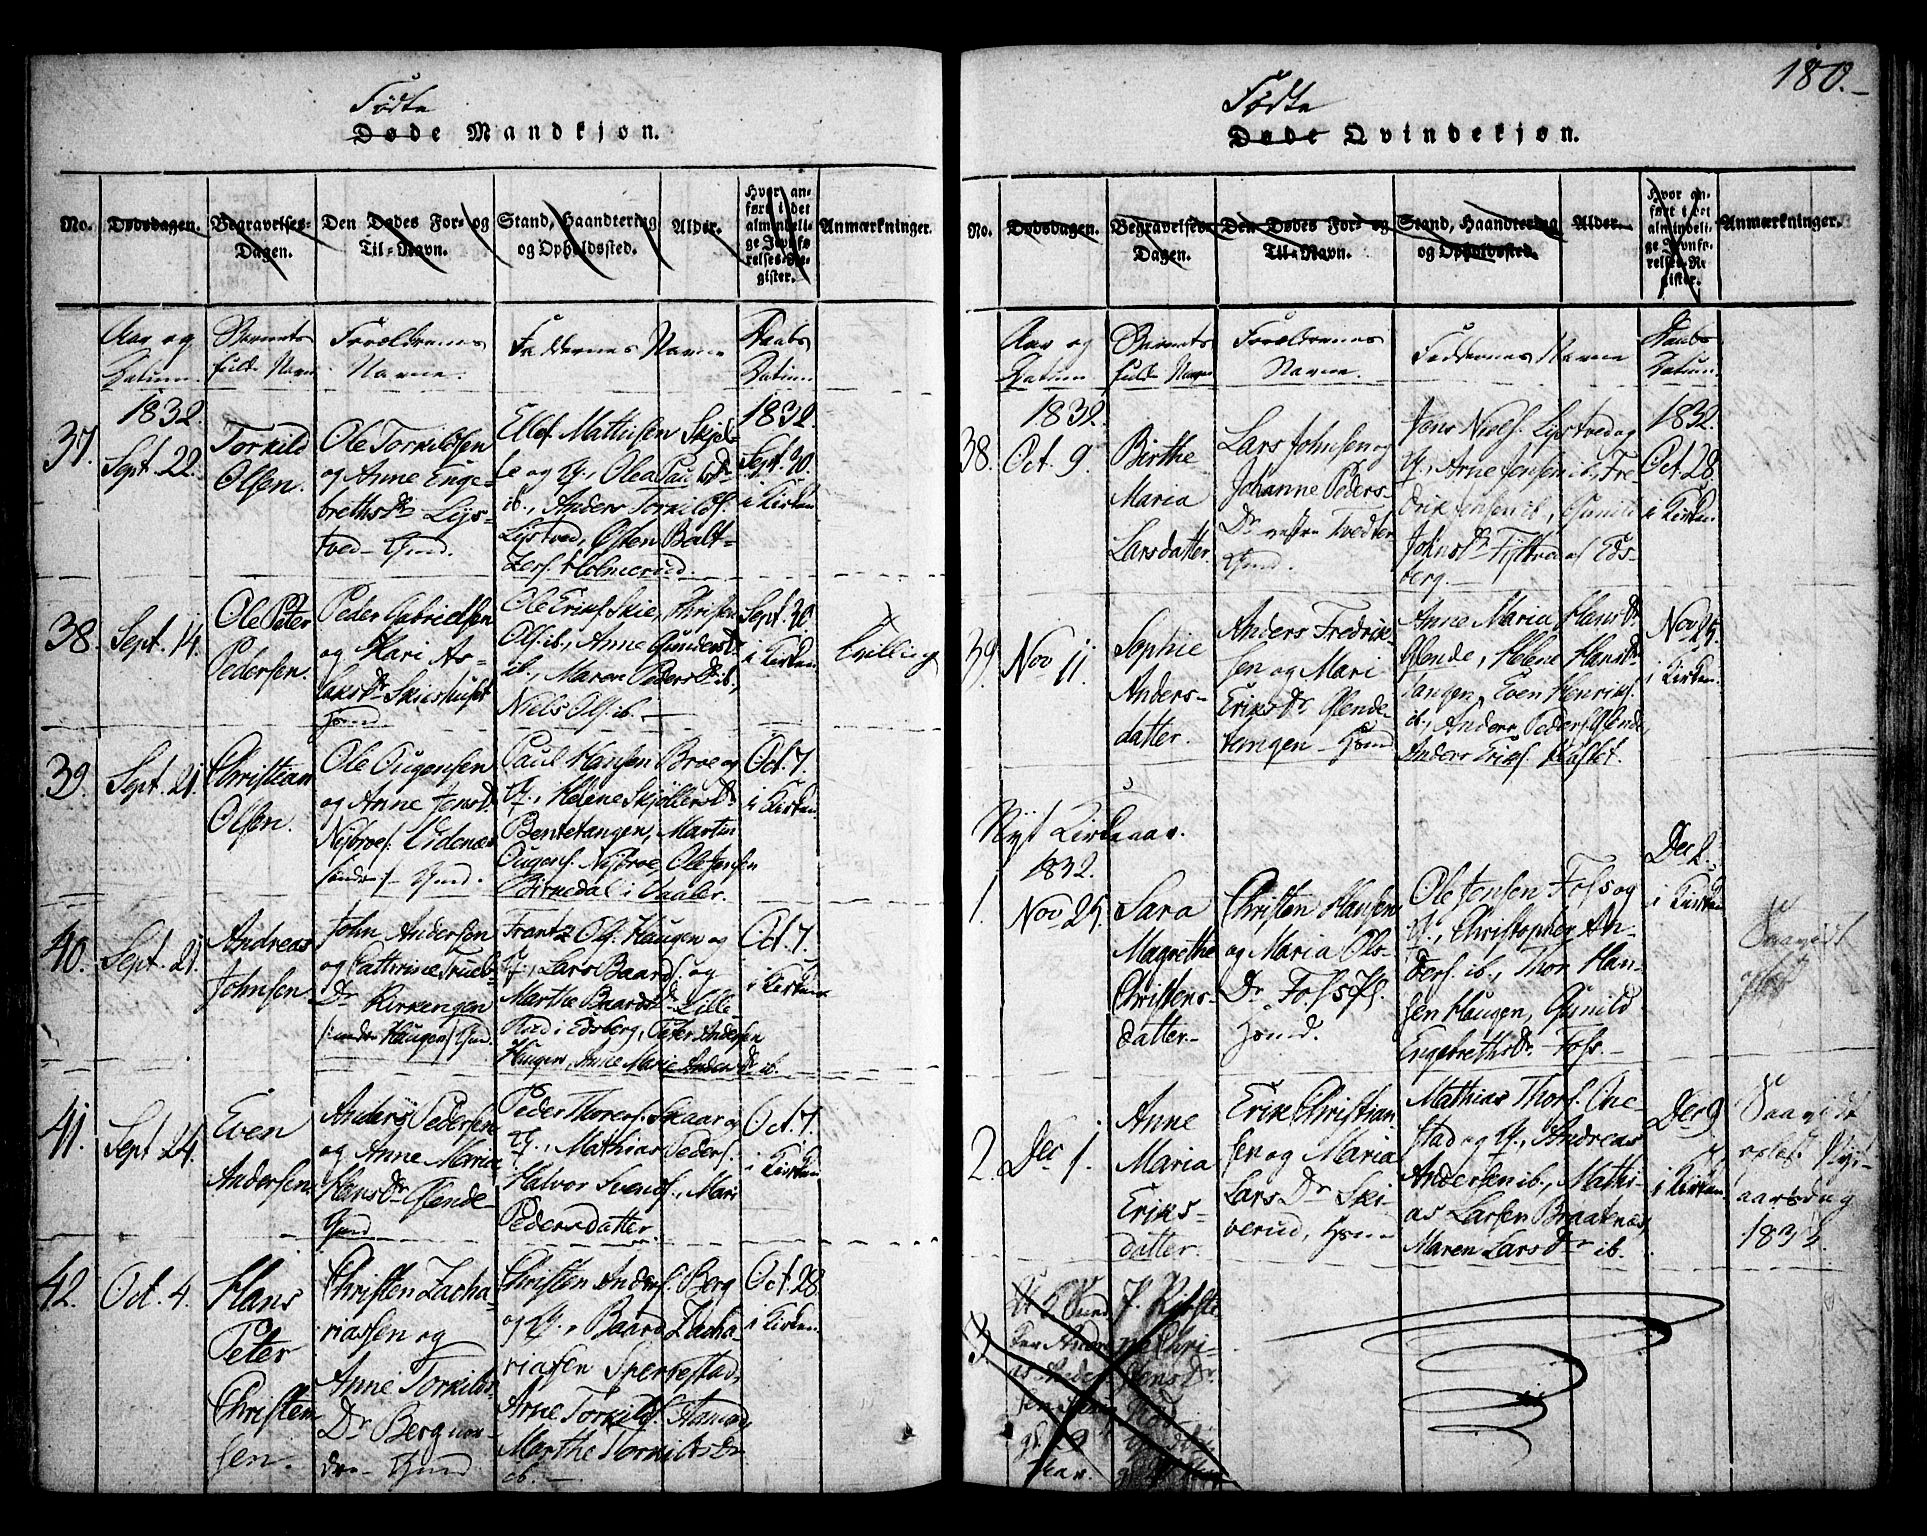 Fødte
Døde Mandkjøn.
No.
Dødsdagen.
Begravelses-
Dagen.
Den Dødes For- og
Til-Navn.
Stand, Haandtering
og Opholdssted.
Alder.
Hvor an-
ført i det
almindeli-
ge Jevnfø-
relses-Re-
gister.
Anmærkninger.
Aar og
Datum
Barnets
fulde Navn
Forældrenes
Navne.
Faddernes Navne
Daabs
Datum
37.
1832
Sept. 22.
Torkild
Olsen.
Ole Torkildsen
og Anne Enge-
brethsdr
tved
Ellef Mathisen Skjol-
le og
ib., Anders Torkilds.
Olsen Balt-
zers. Holmerud.
1832
Sept. 30.
i Kirken
38.
Sept. 14.
Ole Peter
Pedersen.
Peder Gabrielsen
og Kari As-
laksdr
Ole Eriks. Skie, Christen
Ols. ib., Anne Gundersdr
ib., Maren Pedersdr ib.,
Niels Ols. ib.
Sept. 30
i Kirken
Tvilling
39.
Sept. 21.
Christian
Olsen.
Ole Ougensen
og Anne Jensdr
Paul Hansen Broe og
Helene Skjøllersdr
Bentetangen, Martin
Ougens. Nybroe, Ole Jensen
Birkedal i Vaaler.
Oct. 7.
i Kirken
40.
Sept. 21.
Andreas
Johnsen.
John Andersen
og Cathrine Truels-
Dr Kirkengen
(under Haugen)
Frantz Ols. Haugen og
Lars Baards. og
Marthe Baardsdr Lille-
stad i Edsberg, Peter Andersen
Haugen, Anne Marie Andersdr ib.
Oct. 7.
i Kirken
41.
Sept. 24.
Even
Andersen.
Anders Pedersen
og Anne Maria
Hansdr Glende
Peder Thorers. Skaar og
Mathias Peders.
Halvor Svends., Mari
Pedersdatter.
Oct. 7.
i Kirken
42.
Oct. 4.
Hans
Peter
Christen-
sen.
Christen Zacha-
riassen og
Anne Torkilds-
Dr Berg
Christen Anders. Berg
og Baard Zacha-
riasen Sperrestad,
Arne Torkilds.
Marthe Torkildsdr
ib.
Oct. 28
i Kirken
180.
Fødte
Døde Qvindekjøn.
No.
Dødsdagen.
Begravelses-
Dagen.
Den Dødes For- og
Til-Navn.
Stand, Haandtering
og Opholdssted.
Alder.
Hvor an-
ført i det
almindeli-
ge Jevnfø-
relses-Re-
gister.
Anmærkninger.
Aar og
Datum
Barnets
fulde Navn
Forældrenes
Navne.
Faddernes Navne
Daabs
Datum
38.
1832.
Oct. 9.
Birthe
Maria
Larsdatter.
Lars Johnsen og
Johanne Peders-
Dr Tvedter
Jens Niels.
Arne Jensen ib., Fre-
derik Jensen ib., Gunild
Johnsdr af Eds-
berg.
1832.
Oct. 28.
i Kirken
39.
Nov 11.
Sophie
Anders-
datter.
Anders Fredrik-
sen og Mari
Eriksdr Glende-
tangen
Anne Maria Hansdr
Glende, Helene Hansdr
tangen, Even Henriks.
ib., Anders Peders. Glende,
Anders Eriks.
Nov 25.
i Kirken
Nyt Kirkeaar.
1832.
1.
Nov 25.
Sara
Magrethe
Christens-
datter
Christen Hansen
og Maria Ols-
Dr Foss
Ole Jensen Foss og
Christopher An-
ders. ib., Thor Han-
sen Haugen, Gunild
Engebrethsdr Foss.
Dec 2.
i Kirken
2.
Dec 1.
Anne
Maria
Eriks-
datter.
Erik Christian-
sen og Maria
Larsdr Ski-
verud,
Mathias Thors. One-
stad og Andreas
Andersen ib., Mathi-
as Larsen Braatenæs,
Maren Larsdr ib.
Dec 9
i Kirken
Nyt-
aarsdag
1833.
3.